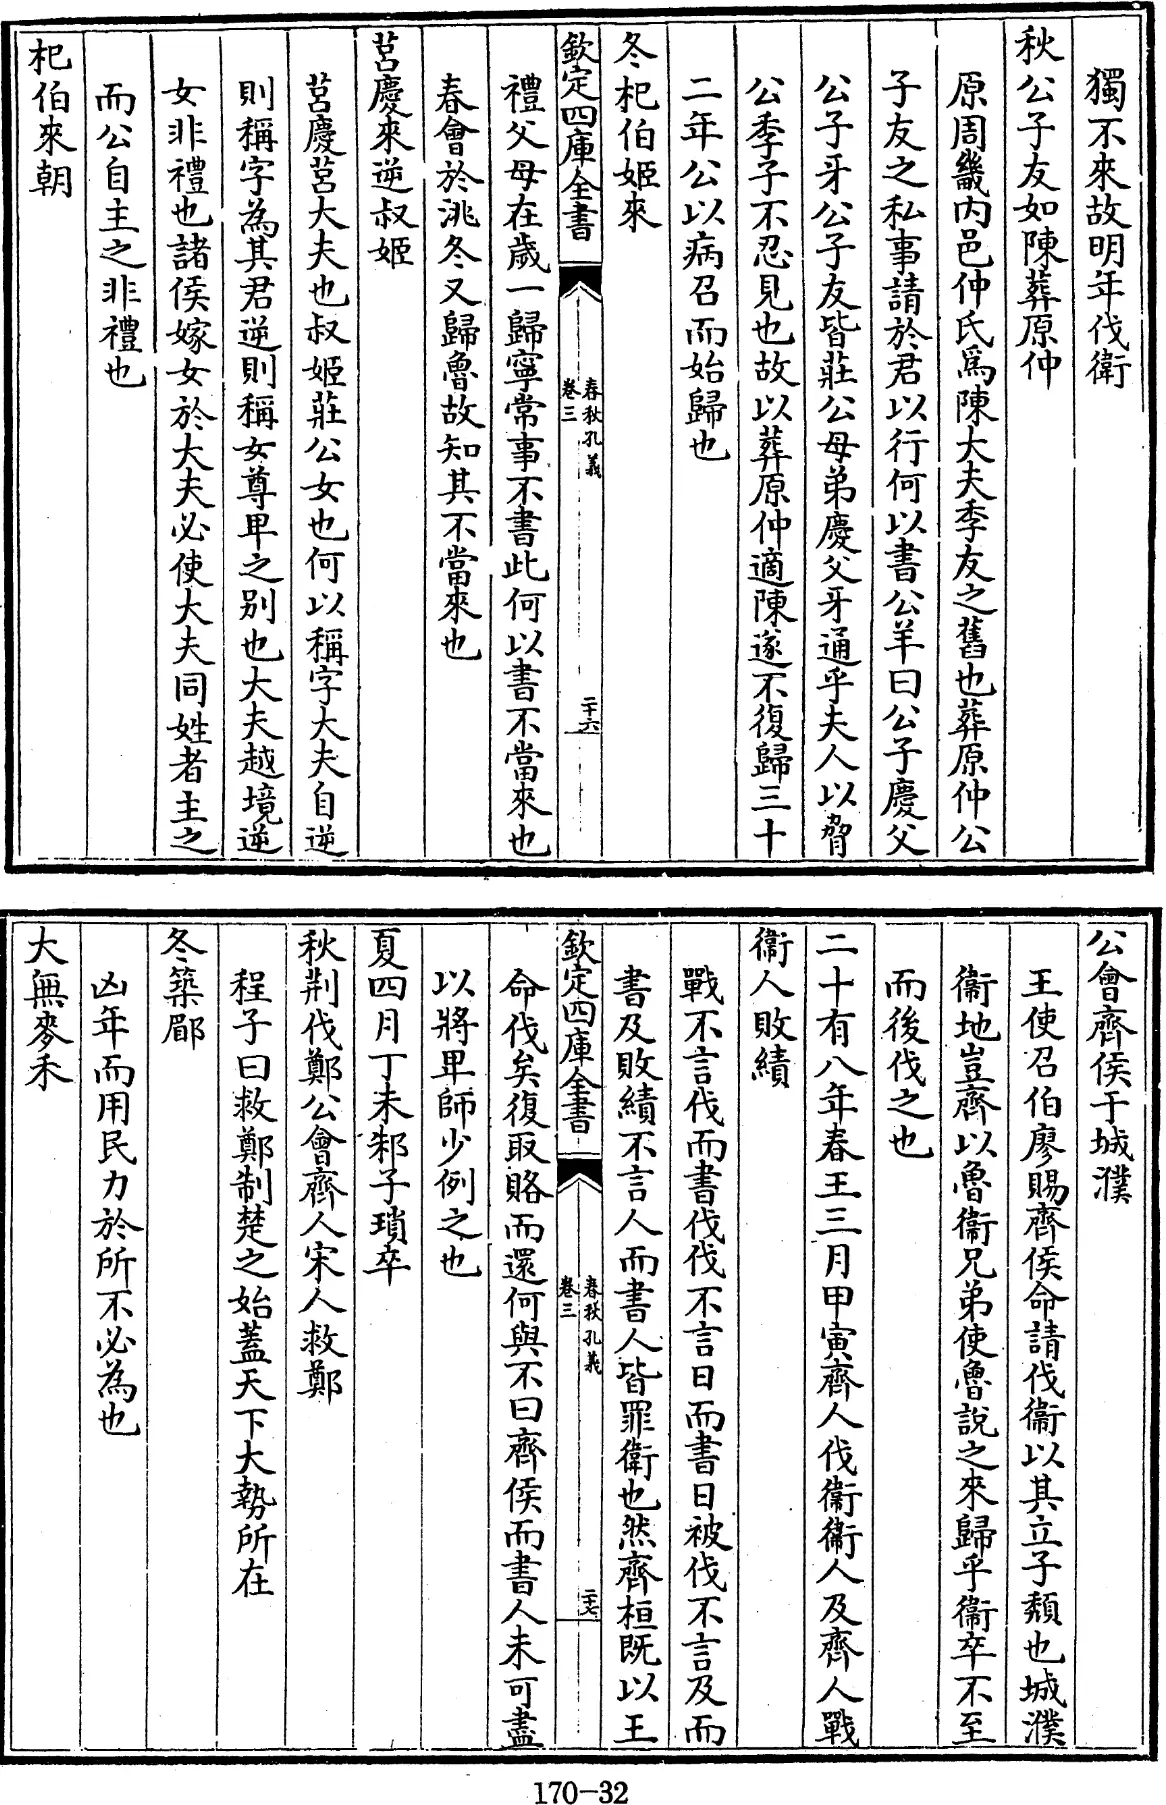 獨不來故明年伐衛
秋公子友如陳葬原仲
原周畿内邑仲氏爲陳大夫季友之舊也葬原仲公
子友之私事請於君以行何以書公羊曰公子慶父
公子牙公子友皆莊公母弟慶父牙通乎夫人以脅
公季子不忍見也故以葬原仲適陳遂不復歸三十
二年公以病召而始歸也
冬杞伯姬來
欽定四庫全書
春秋孔義
卷三
二十六
禮父母在歲一歸寧常事不書此何以書不當來也
春會於洮冬又歸魯故知其不當來也
莒慶來逆叔姬
莒慶莒大夫也叔姬莊公女也何以稱字大夫自逆
則稱字為其君逆則稱女尊卑之别也大夫越境逆
女非禮也諸侯嫁女於大夫必使大夫同姓者主之
而公自主之非禮也
杞伯來朝
公會齊侯于城濮
王使召伯廖賜齊侯命請伐衞以其立子頽也城濮
衞地豈齊以魯衞兄弟使魯說之來歸乎衞卒不至
而後伐之也
二十有八年春王三月甲寅齊人伐衞衞人及齊人戰
衞人敗績
戰不言伐而書伐伐不言日而書日被伐不言及而
書及敗績不言人而書人皆罪衛也然齊桓既以王
欽定四庫全書
春秋孔義
卷三
二十七
命伐矣復取賂而還何與不曰齊侯而書人未可盡
以將卑師少例之也
夏四月丁未邾子瑣卒
秋荆伐鄭公會齊人宋人救鄭
程子曰救鄭制楚之始蓋天下大勢所在
冬築郿
凶年而用民力於所不必為也
大無麥禾
170-32